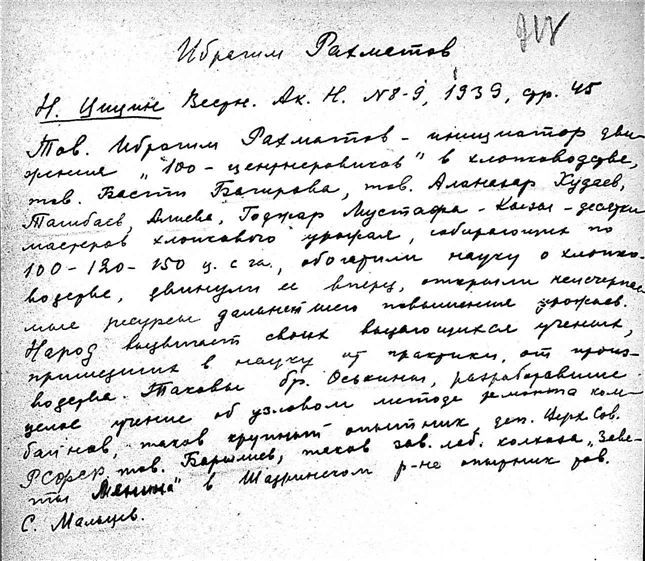 Ибрагим Рахметов
Н. Цицин Вестн. Ак. Н. N 8-9, 1939, стр. 45
Тов. Ибрагим Рахматов - инициатор дви-
жения "100-центнеровиков" в хлопководстве,
тов. Басти Багирова, тов. Аланазар Худаев,
Ташбаев, Алиева, Годжар Мустафа - Кызы - десятки
мастеров хлопкового урожая, собирающих по
100-120-150 ц. с га, обогатили науку о хлопко-
водстве, двинули ее вперед, открыли неисчерпае
мые ресурсы дальнейшего повышения урожаев.
Народ выдвигает своих выдающихся ученых,
пришедших в науку от практики, от произ-
водства. Таковы бр. Оськины, разработавшие
целое учение об узловом методе ремонта ком-
байнов, таков крупный опытник, деп. Верх Сов.
РСФСР тов. Барышев, таков зав. лаб. колхоза "Заве-
ты Ленина" в Шадринском р-не опытник тов.
С. Мальцев.